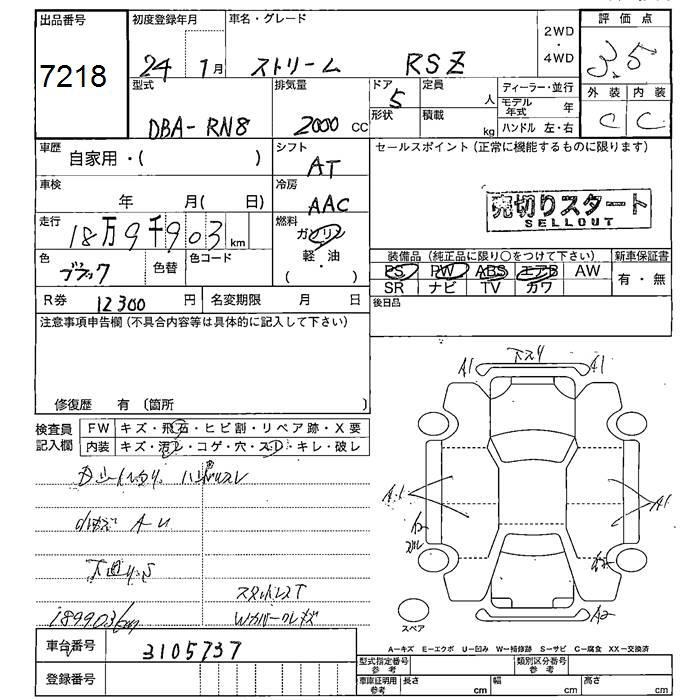 出品番号 初度登録年月 車名・グレード 2WD・4WD 評価点
7218 24 1月 ストリーム RSZ 3.5
型式 排気量 ドア 定員 人 ディーラー・並行 外装 内装
DBA-RN8 2000 CC 5 形状 積載 kg モデル年式 年 C C
ハンドル 左・右
車歴 自家用・( ) シフト AT セールスポイント(正常に機能するものに限ります)
車検 年 月( 日) 冷房 AAC
売切りスタート
SELLOUT
走行 18万9千903 km 燃料 ガソリン 軽・油 ( )
色 ブラック 色替 色コード
装備品(純正品に限り○をつけて下さい) 新車保証書
PS PW ABS エアB AW 有・無
SR ナビ TV カワ
R券 12300 円 名変期限 月 日 後日品
注意事項申告欄(不具合内容等は具体的に記入して下さい)
修復歴 有 〔箇所 〕
検査員記入欄 FW キズ・飛石・ヒビ割・リペア跡・X要
内装 キズ・汚レ・コゲ・穴・スレ・キレ・破レ
A1 下スリ A1
A1 A1
A2
スレ
A2
A2
スペア
小キズ A-U
189903km
Wカバークレキズ
A-キズ E-エクボ U-凹み W-補修跡 S-サビ C-腐食 XX-交換済
車台番号 3105737
登録番号
型式指定番号 参考 類別区分番号 参考
車庫証明用 参考 長さ cm 幅 cm 高さ cm